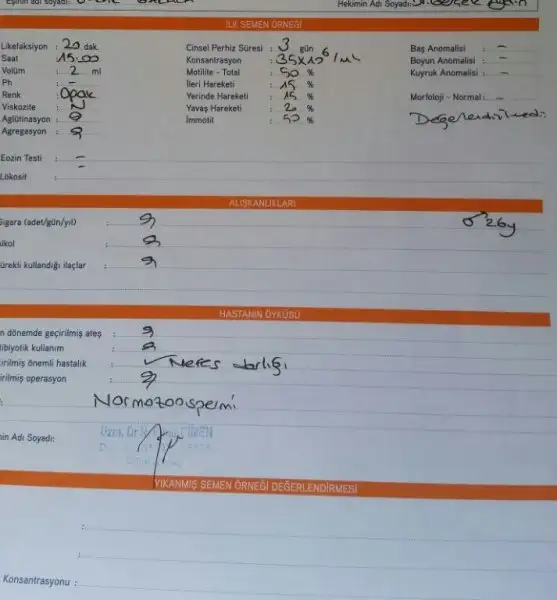 Eşinin adı soyadı:
Hekimin Adı Soyadı:
İLK SEMEN ÖRNEĞİ
Likefaksiyon : 20 dak.
Saat 15:00
Volüm : 2 ml
Ph : -
Renk Opak
Viskozite : N
Aglütinasyon :
Agregasyon :
Cinsel Perhiz Süresi : 3 gün
Konsantrasyon : 35x10⁶/ml
Motilite - Total : 50 %
İleri Hareketi : 15 %
Yerinde Hareketi : 15 %
Yavaş Hareketi : 20 %
İmmotil : 50 %
Baş Anomalisi : -
Boyun Anomalisi : -
Kuyruk Anomalisi : -
Morfoloji - Normal : -
Değerlendirilmedi
Eozin Testi : -
Lökosit : -
ALIŞKANLIKLARI
Sigara (adet/gün/yıl) :
lkol :
ürekli kullandığı ilaçlar :
♂ 26y
HASTANIN ÖYKÜSÜ
n dönemde geçirilmiş ateş :
tibiyotik kullanım :
irilmiş önemli hastalık : ✓ Nefes darlığı
irilmiş operasyon :
Normozoospermi
in Adı Soyadı:
YIKANMIŞ SEMEN ÖRNEĞİ DEĞERLENDİRMESİ
Konsantrasyonu :